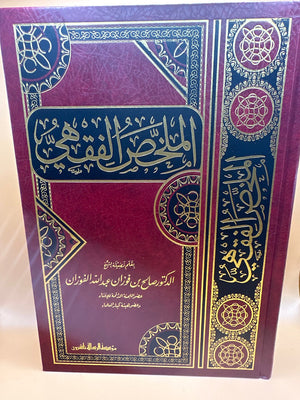 الملخص الفقهي
بقلم فضيلة الشيخ
الدكتور صالح بن فوزان بن عبد الله الفوزان
عضو اللجنة الدائمة للإفتاء
وعضو هيئة كبار العلماء
مؤسسة الرسالة ناشرون
الملخص الفقهي